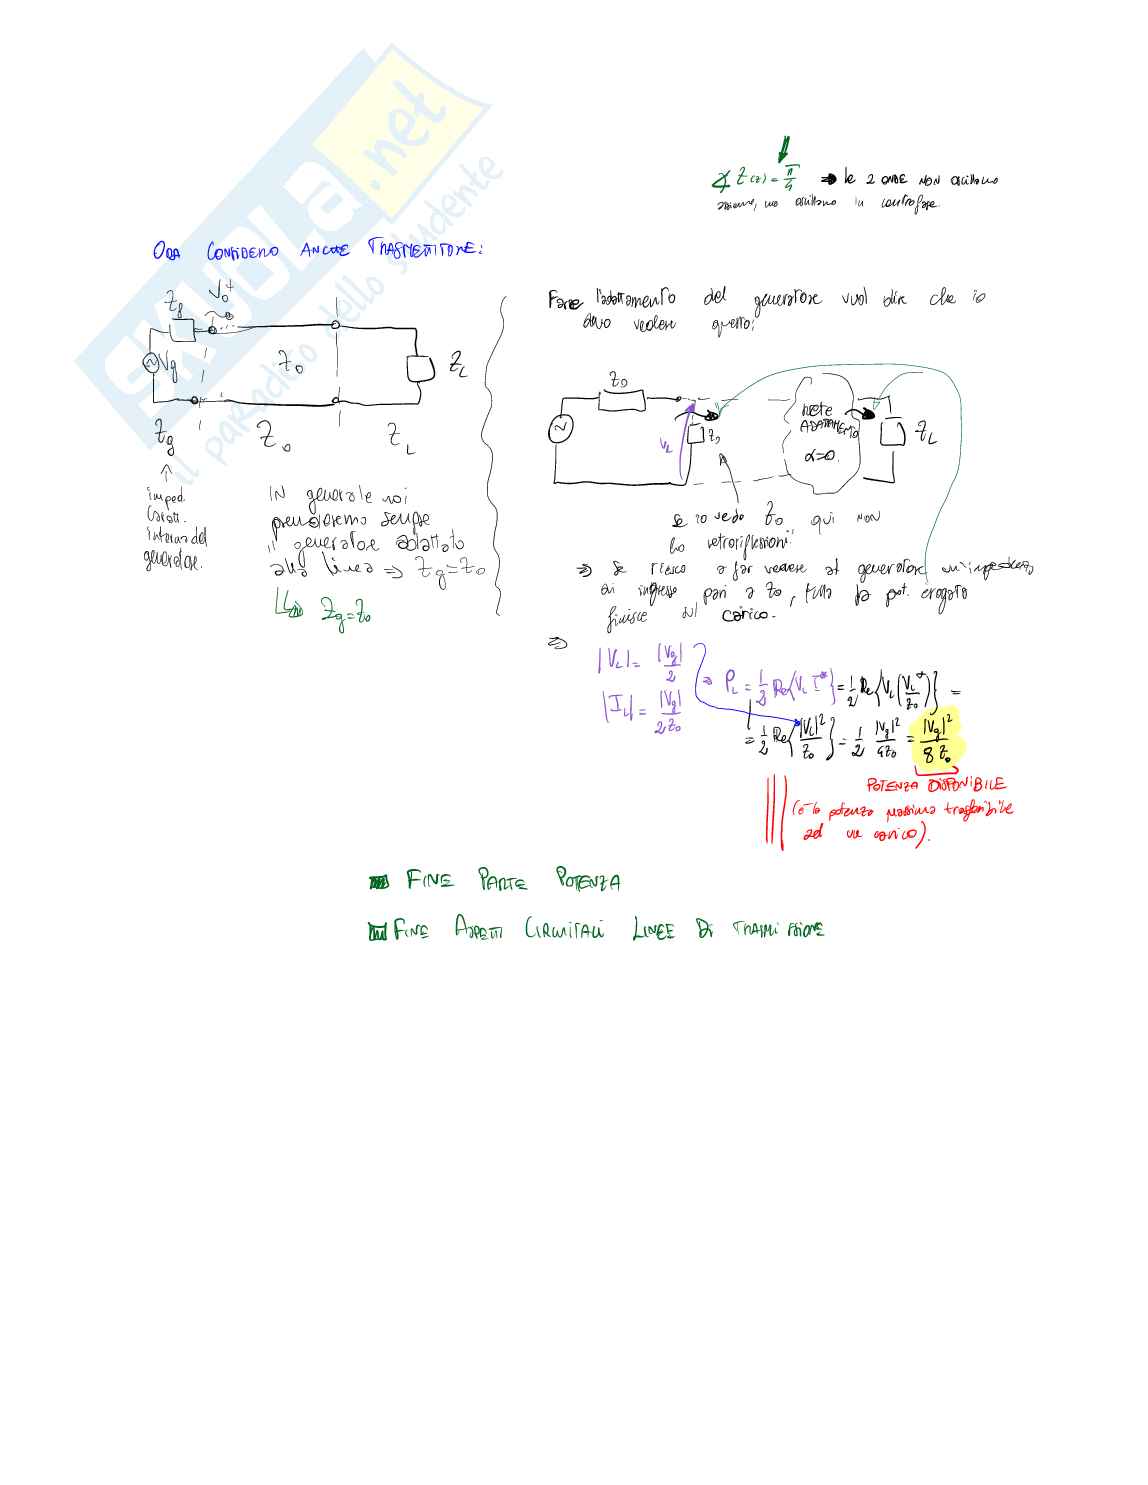 SKUOLA.net
il paradiso dello studente
∡ Z(z) = π/4 ➔ le 2 ONDE NON oscillano
assieme, ma oscillano in controfase.
ORA CONSIDERO ANCHE TRASMETTITORE:
Zg V0+
Vg Z0 ZL
Zg Z0 ZL
imped.
Caratt.
interna del
generatore.
IN generale noi
prenderemo sempre
il generatore adattato
alla linea ⇒ Zg=Z0
Zg=Z0
Fare l'adattamento del generatore vuol dire che io
devo vedere questo:
Z0
VL Z0
RETE
ADATTAMENTO
α=0.
ZL
se io vedo Z0 qui non
ho retroriflessioni
⇒ Se riesco a far vedere al generatore un'impedenza
di ingresso pari a Z0, tutta la pot. erogata
finisce sul carico.
⇒
|VL| = |Vg|/2
|IL| = |Vg|/2Z0
⇒ PL = 1/2 Re{VL I*} = 1/2 Re{VL (VL*/Z0)} =
= 1/2 Re{|VL|²/Z0} = 1/2 |Vg|²/4Z0 = |Vg|²/8Z0
POTENZA DISPONIBILE
(è la potenza massima trasferibile
ad un carico).
FINE PARTE POTENZA
FINE ASPETTI CIRCUITALI LINEE DI TRASMISSIONE